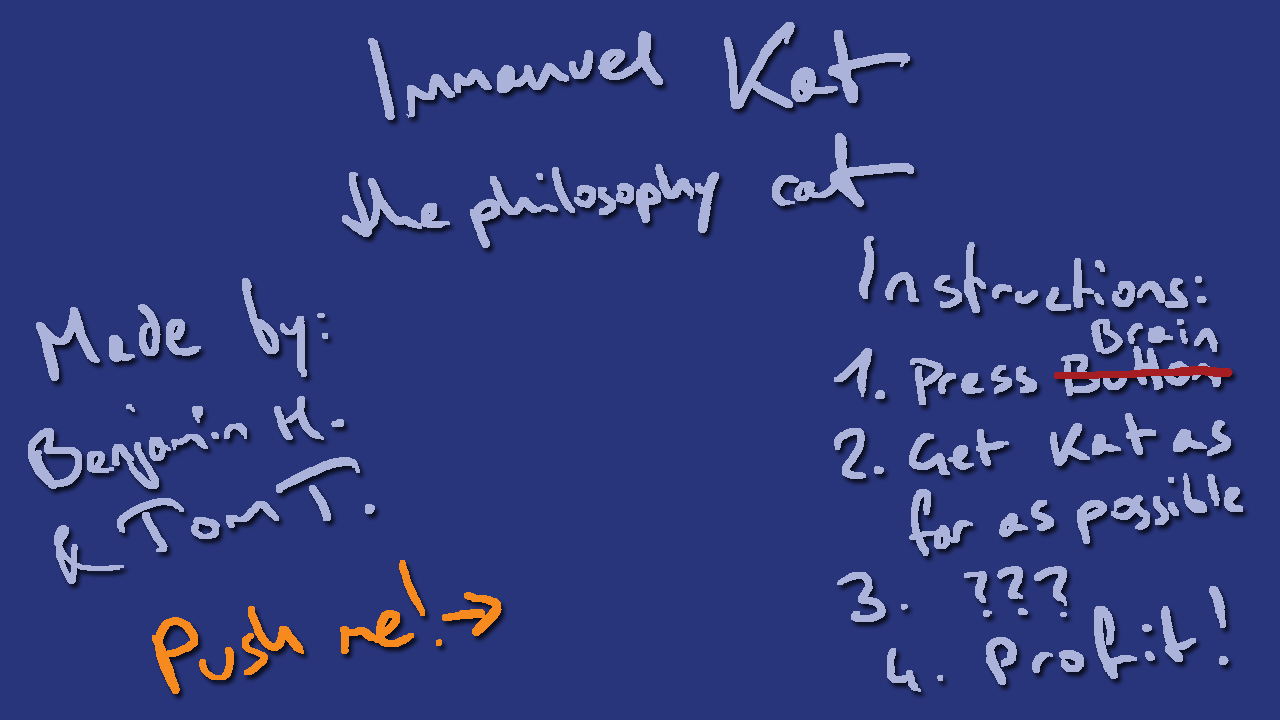 Immanuel Kat
the philosophy cat
Made by:
Benjamin H.
& Tom T.
Push me! →
Instructions:
Brain
1. Press Button
2. Get Kat as
far as possible
3. ???
4. Profit!